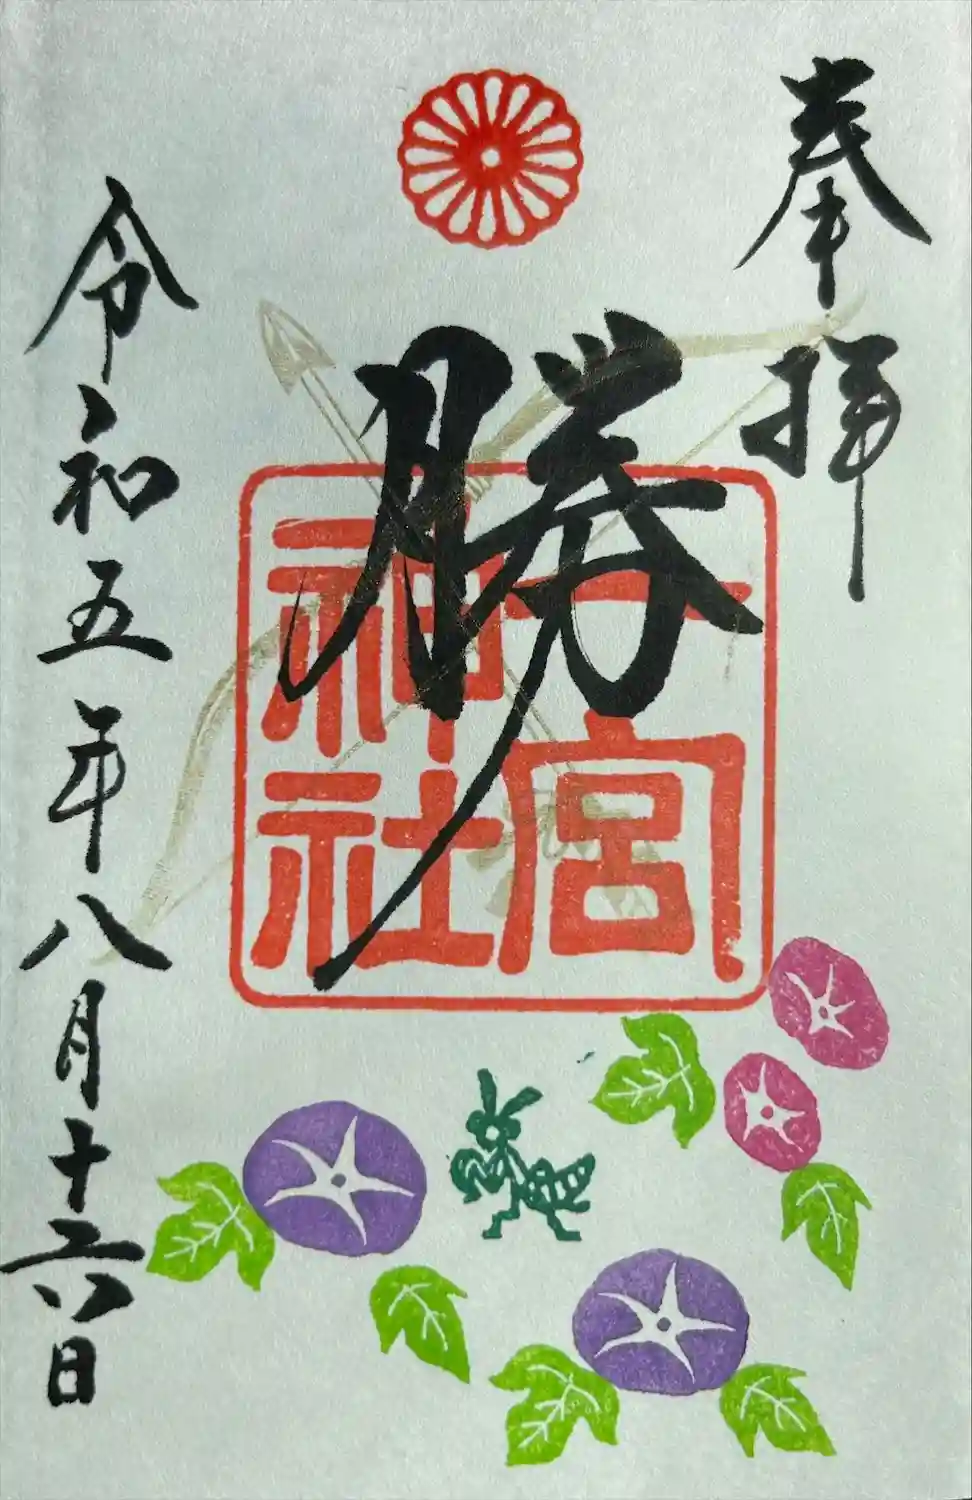 奉拝
勝
宮
神社
令和五年八月十六日